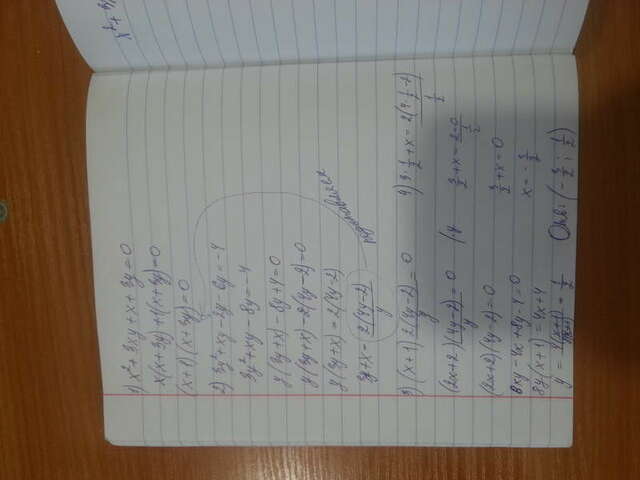 1) x² + 3xy + x + 3y = 0
x(x + 3y) + 1(x + 3y) = 0
(x + 1)(x + 3y) = 0
2) 3y² + xy - 2y - 6y = -4
3y² + xy - 8y = -4
y(3y + x) - 8y + 4 = 0
y(3y + x) - 2(4y - 2) = 0
y(3y + x) = 2(4y - 2)
3y + x = 2(4y - 2) / y
подставляем
3) (x + 1) 2(4y - 2) / y = 0
(2x + 2) (4y - 2) / y = 0 | · y
(2x + 2)(4y - 2) = 0
8xy - 4x + 8y - 4 = 0
8y(x + 1) = 4x + 4
y = 4(x + 1) / 8(x + 1) = 1/2
4) 3 · 1/2 + x = 2(4 · 1/2 - 2) / 1/2
3/2 + x = 2 · 0 / 1/2
3/2 + x = 0
x = - 3/2
Отв: (- 3/2 ; 1/2)